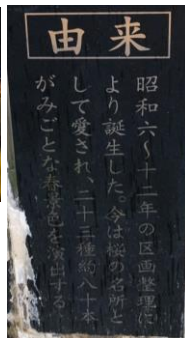 由来
昭和六〜十二年の区画整理に
より誕生した。今は桜の名所と
して愛され、二十三種約八十本
がみごとな春景色を演出する。